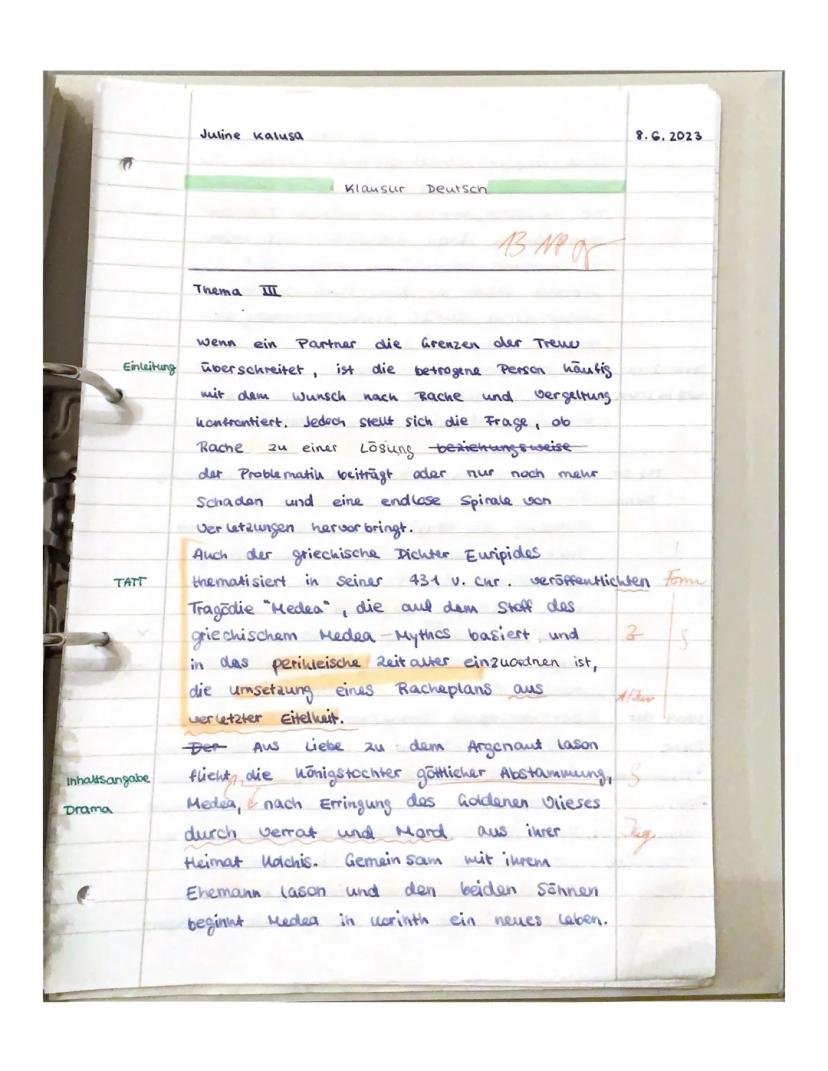 Juline Kalusa
8.6.2023
Klausur Deutsch
13 NP
Thema III
Wenn ein Partner die Grenzen der Treue
Einleitung
überschreitet, ist die betrogene Person häufig
mit dem Wunsch nach Rache und Vergeltung
konfrontiert. Jedoch stellt sich die Frage, ob
Rache zu einer Lösung beziehungsweise
der Problematik beiträgt oder nur noch mehr
Schaden und eine endlose Spirale von
Verletzungen hervorbringt.
Auch der griechische Dichter Euripides
TATT
thematisiert in seiner 431 v. Chr. veröffentlichten
Form
Tragödie "Medea", die auf dem Stoff des
griechischem Medea-Mythos basiert und
in das perikleische Zeitalter einzuordnen ist,
die Umsetzung eines Racheplans aus
verletzter Eitelkeit.
Der Aus Liebe zu dem Argonaut Iason
Inhaltsangabe
Drama
flieht, die Königstochter göttlicher Abstammung,
Medea, nach Erringung des Goldenen Vlieses
durch Verrat und Mord aus ihrer
Heimat Kolchis. Gemeinsam mit ihrem
Ehemann Iason und den beiden Söhnen
beginnt Medea in Korinth ein neues Leben.